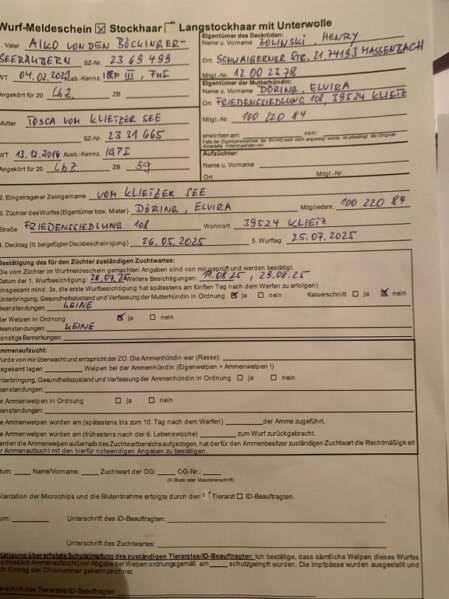 Wurf-Meldeschein ☒ Stockhaar ☐ Langstockhaar mit Unterwolle
1. Vater AIKO VON DEN BÖCKINGER-
SEERÄUBERN SZ-Nr. 23 69 499
WT 04.02.2021 Ausb.-Kennz. IGP III,
Angekört für 20 Lbz ZB
Eigentümer des Deckrüden:
Name u. Vorname ZOLINSKI, HENRY
Ort SCHWAIGERNER STR. 21, 74193 MASSENBACH
Mitgl.-Nr. 12 00 23 78
Mutter TOSCA VOM KLIETZER SEE
SZ-Nr. 23 31 665
WT 13.12.2016 Ausb.-Kennz. IGP I
Angekört für 20 Lbz ZB SG
Eigentümer der Mutterhündin:
Name u. Vorname DÖRING, ELVIRA
Ort FRIEDENSSIEDLUNG 108 39524 KLIETZ
Mitgl.-Nr. 100 220 84
erworben am von:
Aufzüchter:
Name u. Vorname
Ort Mitgl.-Nr.
2. Eingetragener Zwingername VOM KLIETZER SEE
3. Züchter des Wurfes (Eigentümer bzw. Mieter) DÖRING, ELVIRA Mitgliedernr. 100 220 84
Straße FRIEDENSSIEDLUNG 108 Wohnort 39524 KLIETZ
4. Decktag (lt. beigefügter Deckbescheinigung) 26.05.2025 5. Wurftag 25.07.2025
Bestätigung des für den Züchter zuständigen Zuchtwartes:
Die vom Züchter im Wurfmeldeschein gemachten Angaben sind von mir geprüft und werden bestätigt.
Datum der 1. Wurfbesichtigung: 28.07.25 Weitere Besichtigungen: 11.08.25, 29.08.25
(insgesamt mind. 3x, die erste Wurfbesichtigung hat spätestens am fünften Tag nach dem Werfen zu erfolgen)
Unterbringung, Gesundheitszustand und Verfassung der Mutterhündin in Ordnung ☒ ja ☐ nein Kaiserschnitt ☐ ja ☒ nein
Beanstandungen: KEINE
der Welpen in Ordnung ☒ ja ☐ nein
Beanstandungen: KEINE
Sonstige Bemerkungen:
Ammenaufzucht:
Wurde von mir überwacht und entspricht der ZO. Die Ammenhündin war (Rasse):
Insgesamt lagen Welpen bei der Ammenhündin (Eigenwelpen + Ammenwelpen !)
Unterbringung, Gesundheitszustand und Verfassung der Ammenhündin in Ordnung ☐ ja ☐ nein
Beanstandungen:
der Ammenwelpen in Ordnung ☐ ja ☐ nein
Beanstandungen:
Die Ammenwelpen wurden am (spätestens bis zum 10. Tag nach dem Werfen) der Amme zugeführt.
Die Ammenwelpen wurden am (frühestens nach der 6. Lebenswoche) zum Wurf zurückgebracht.
werden die Ammenwelpen außerhalb des Zuchtwartbereichs aufgezogen, hat der für den Ammenbesitzer zuständige Zuchtwart die Rechtmäßigkeit
der Ammenaufzucht mit den hierfür notwendigen Angaben zu bestätigen.
Datum: Name/Vorname: Zuchtwart der OG: OG-Nr.:
(in Block oder Maschinenschrift)
Implantation der Microchips und die Blutentnahme erfolgte durch den ☐ Tierarzt ☐ ID-Beauftragten:
Datum: Unterschrift des ID-Beauftragten:
Unterschrift des Zuchtwartes:
Bestätigung über erfolgte Schutzimpfung des zuständigen Tierarztes/ID-Beauftragter: Ich bestätige, dass sämtliche Welpen dieses Wurfes
(einschließlich Ammenaufzucht) vor Abgabe der Welpen ordnungsgemäß am schutzgeimpft wurden. Die Impfpässe wurden ausgestellt und
durch Eintrag der Chipnummer gekennzeichnet.
Unterschrift des Tierarztes/ID-Beauftragter